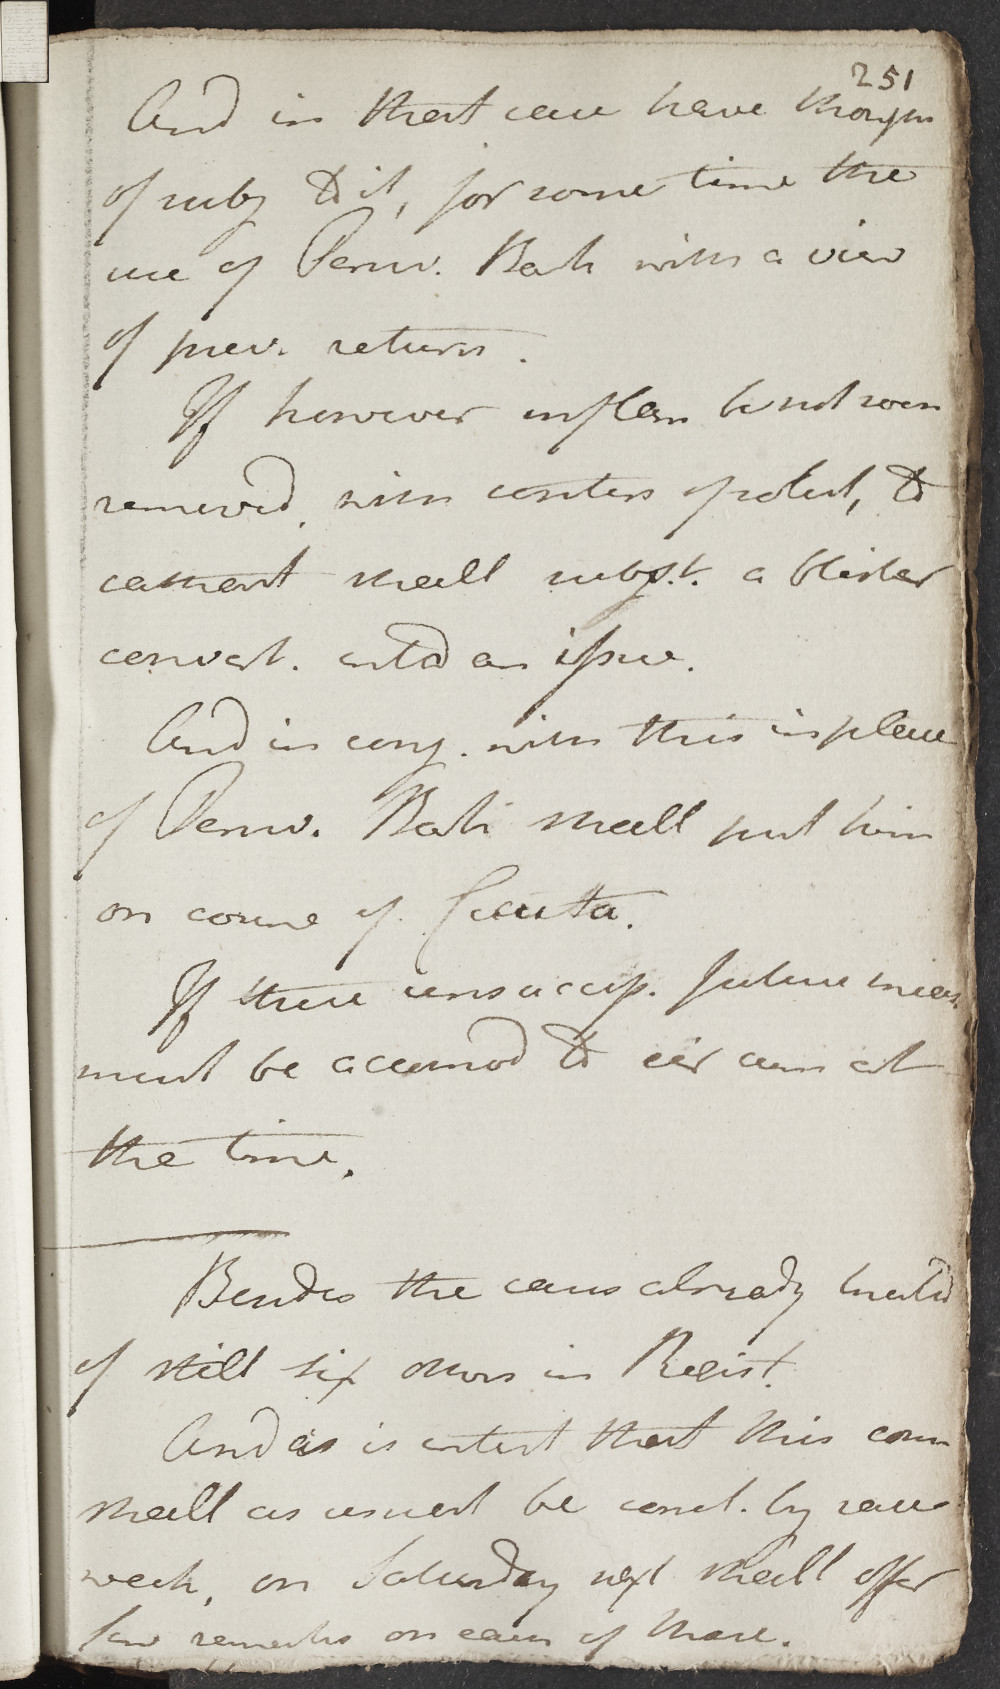 251
And in that case have thoughts
of subj to it, for some time the
use of Peruv. Bark with a view
of prev. return.
If however inflam be not soon
removed, with conters of potent, to
cathart shall subst. a blister
convert. into an issue.
And in conj. with this in place
of Peruv. Bark shall put him
on course of Cicuta.
If these unsuccesf. future meas.
must be accomod to cir cum at
the time.
Besides the cases already treated
of still six others in Regist.
And as is intent that this course
shall as usual be concl. by same
week, on Saturday next shall offer
few remarks on each of these.